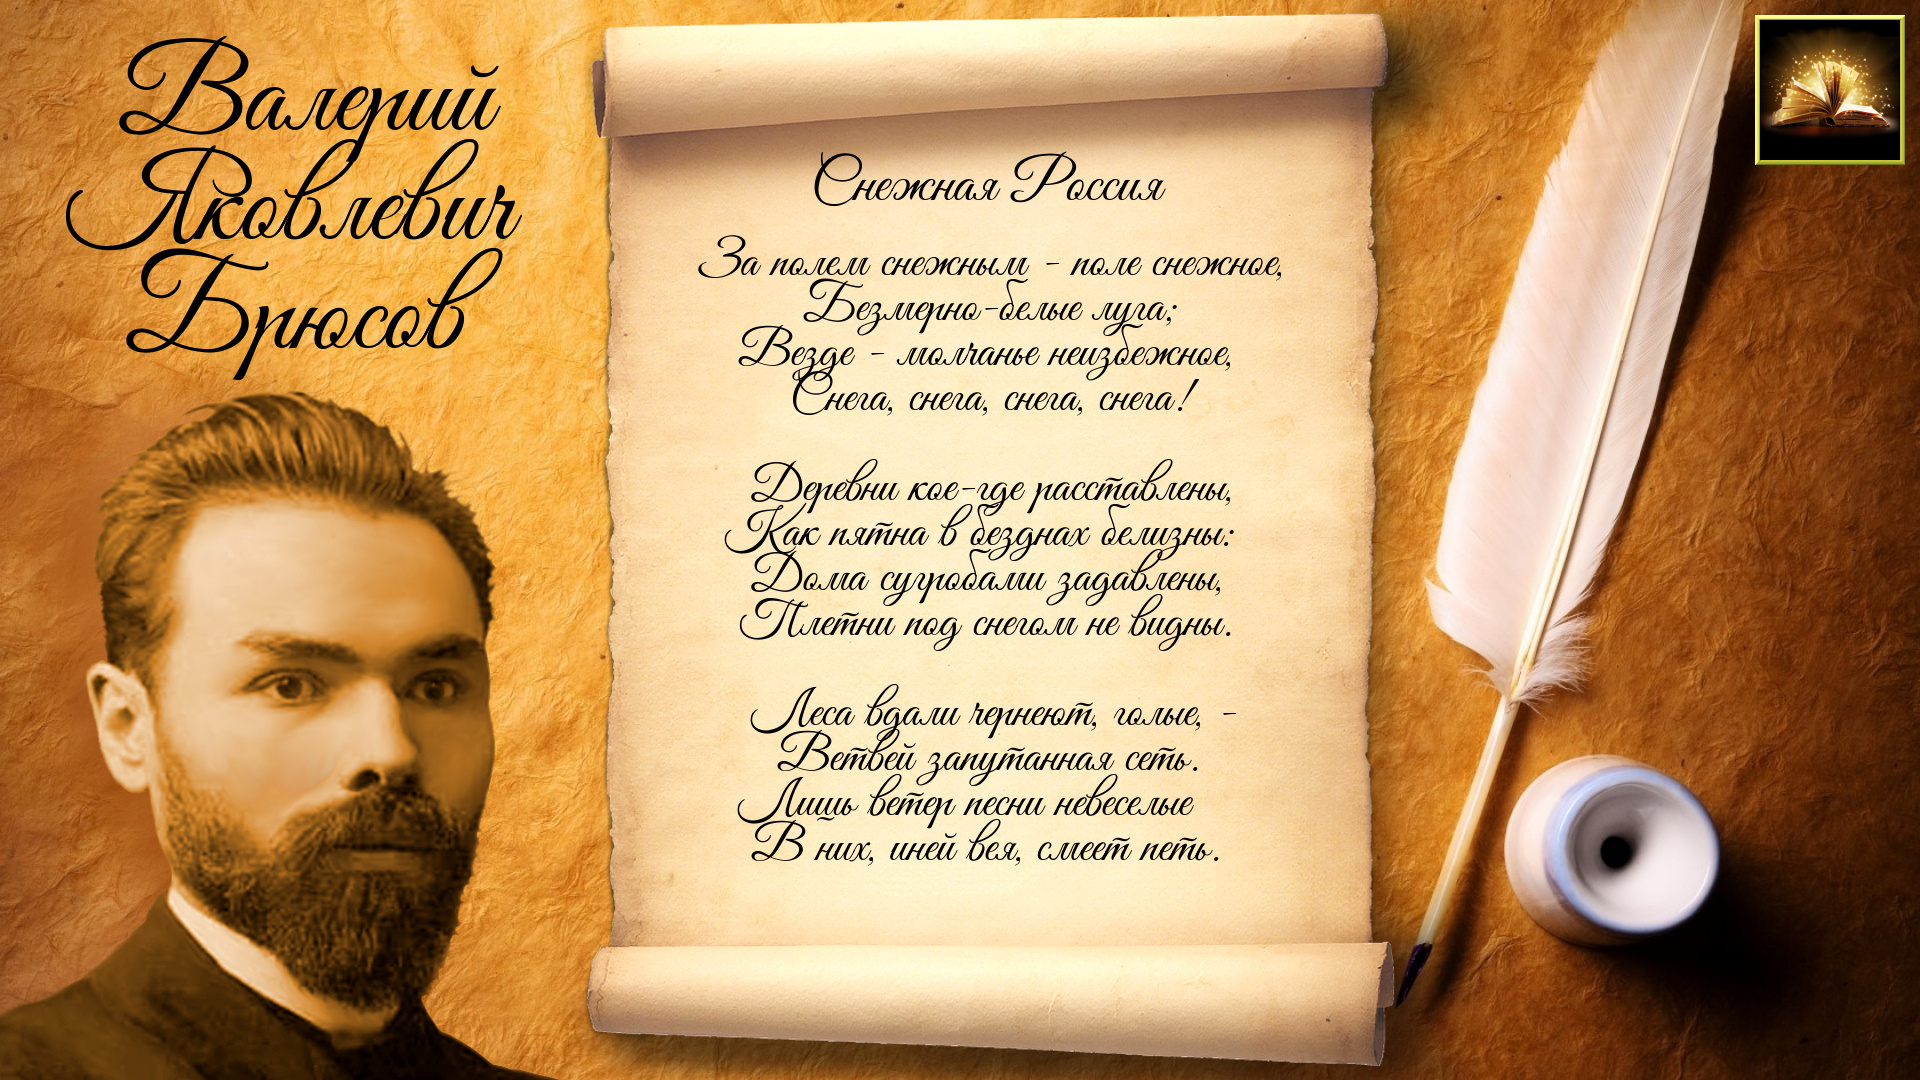 Валерий
Яковлевич
Брюсов
Снежная Россия
За полем снежным - поле снежное,
Безмерно-белые луга;
Везде - молчанье неизбежное,
Снега, снега, снега, снега!
Деревни кое-где расставлены,
Как пятна в безднах белизны:
Дома сугробами задавлены,
Плетни под снегом не видны.
Леса вдали чернеют, голые, -
Ветвей запутанная сеть.
Лишь ветер песни невеселые
В них, иней вея, смеет петь.